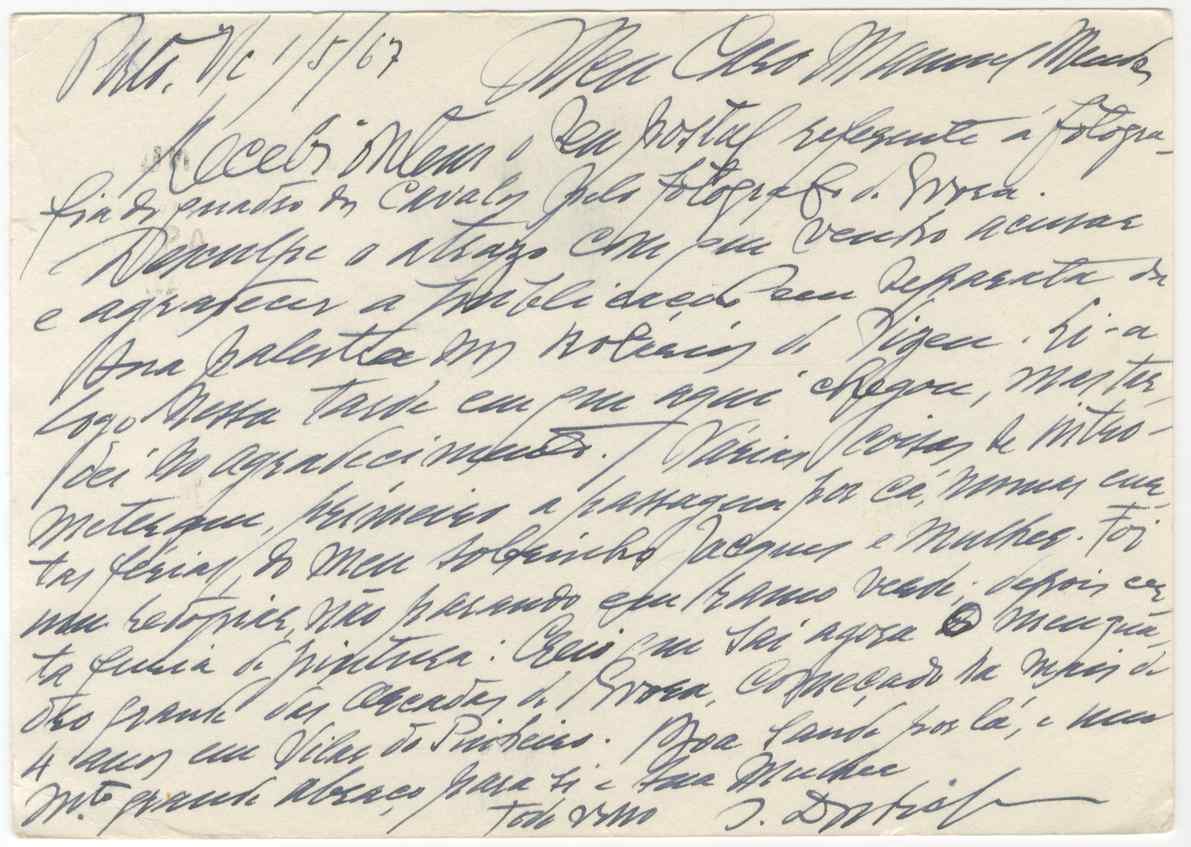 Porto, V/c 1/5/67 Meu Caro Manuel Mendes
Recebi ontem o seu postal referente á fotogra-
fia do quadro dos Cavalos pelo fotografo de Evora.
Desculpe o atrazo com que venho acusar
e agradecer a publicação em separata da
sua palestra nos Notícias de . Li-a
logo nessa tarde em que aqui chegou, mas tar-
dei no agradecimento. Várias coisas se intro-
meteram, primeiro a passagem por cá, numas cur-
tas férias, do meu sobrinho Jacques e mulher. Foi
num , não parando em ramo verde; depois cer-
ta furia de pintura: Creio que sai agora o meu qua-
dro grande das Arcadas de Evora, começado ha mais de
4 anos em Vilar do Pinheiro. Boa saude por lá, e um
mto. grande abraço para si e sua Mulher
Todo vosso